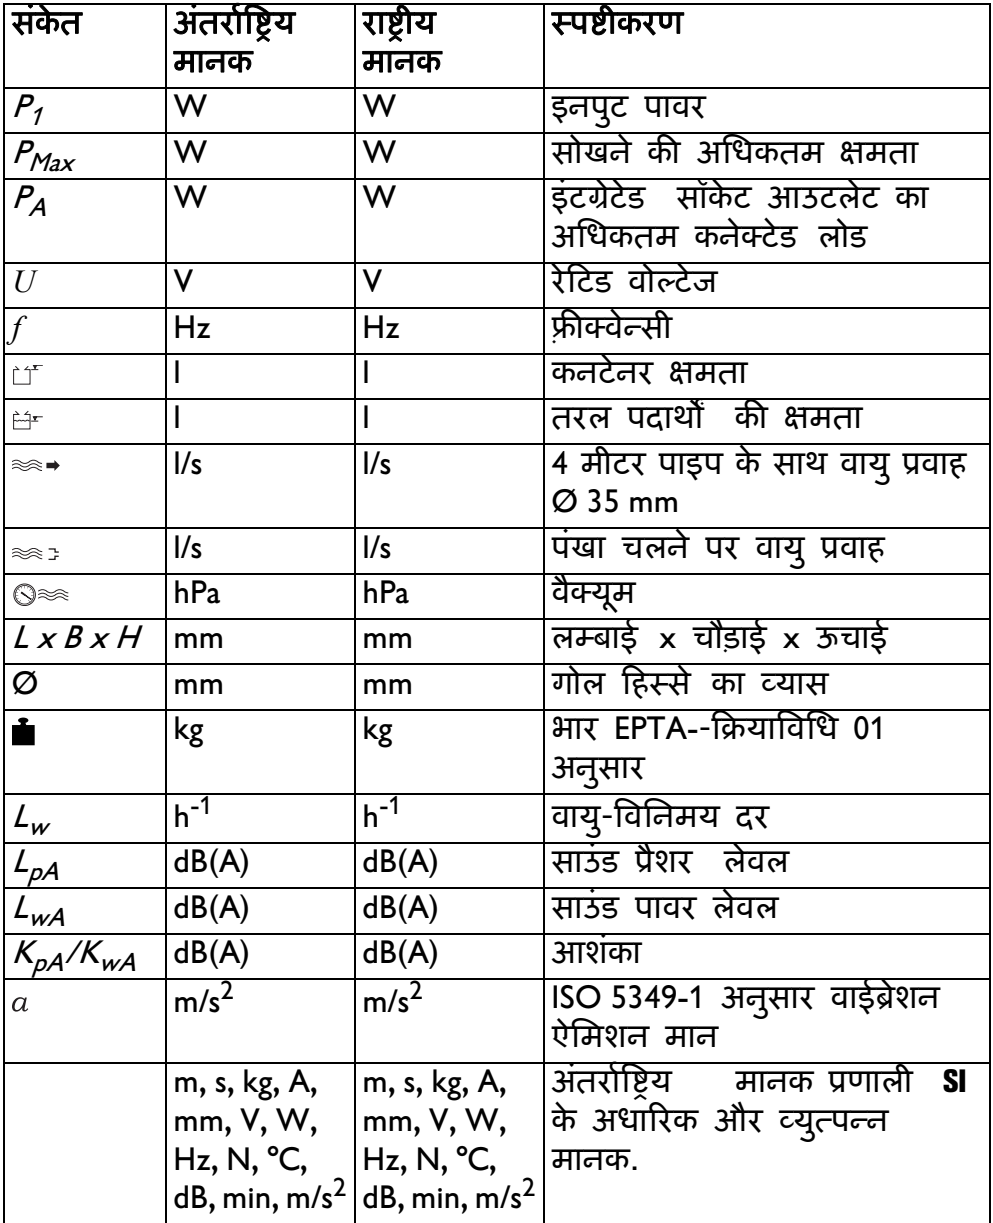 संकेत अंतर्राष्ट्रिय मानक राष्ट्रीय मानक स्पष्टीकरण
P1 W W इनपुट पावर
PMax W W सोखने की अधिकतम क्षमता
PA W W इंटग्रेटेड सॉकेट आउटलेट का
अधिकतम कनेक्टेड लोड
U V V रेटिड वोल्टेज
f Hz Hz फ़्रीक्वेन्सी
l l कनटेनर क्षमता
l l तरल पदार्थों की क्षमता
l/s l/s 4 मीटर पाइप के साथ वायु प्रवाह
Ø 35 mm
l/s l/s पंखा चलने पर वायु प्रवाह
hPa hPa वैक्यूम
L x B x H mm mm लम्बाई x चौड़ाई x ऊचाई
Ø mm mm गोल हिस्से का व्यास
kg kg भार EPTA--क्रियाविधि 01
अनुसार
Lw h-1 h-1 वायु-विनिमय दर
LpA dB(A) dB(A) साउंड प्रैशर लेवल
LwA dB(A) dB(A) साउंड पावर लेवल
KpA/KwA dB(A) dB(A) आशंका
a m/s2 m/s2 ISO 5349-1 अनुसार वाईब्रेशन
ऐमिशन मान
m, s, kg, A, m, s, kg, A, अंतर्राष्ट्रिय मानक प्रणाली SI
mm, V, W, mm, V, W, के अधारिक और व्युत्पन्न
Hz, N, °C, Hz, N, °C, मानक.
dB, min, m/s2 dB, min, m/s2